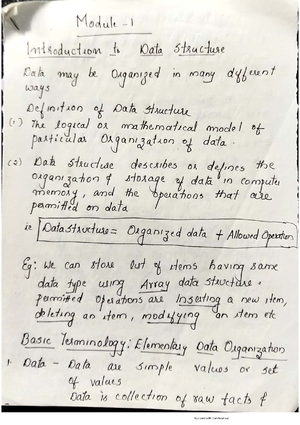 Module - 1
Introduction to Data Structure
Data may be Organized in many different
ways
Definition of Data Structure
(1) The logical or mathematical model of
particular Organization of data.
(2) Data Structure describes or defines the
organization & storage of data in computer
memory, and the operations that are
permitted on data
ie Data Structure = Organized data + Allowed Operation
Eg: We can store list of items having same
data type using Array data structure.
permitted Operations are Inserting a new item,
deleting an item, modifying an item etc
Basic Terminology: Elementary Data Organization
1. Data - Data are simple values or set
of values
Data is collection of raw facts &